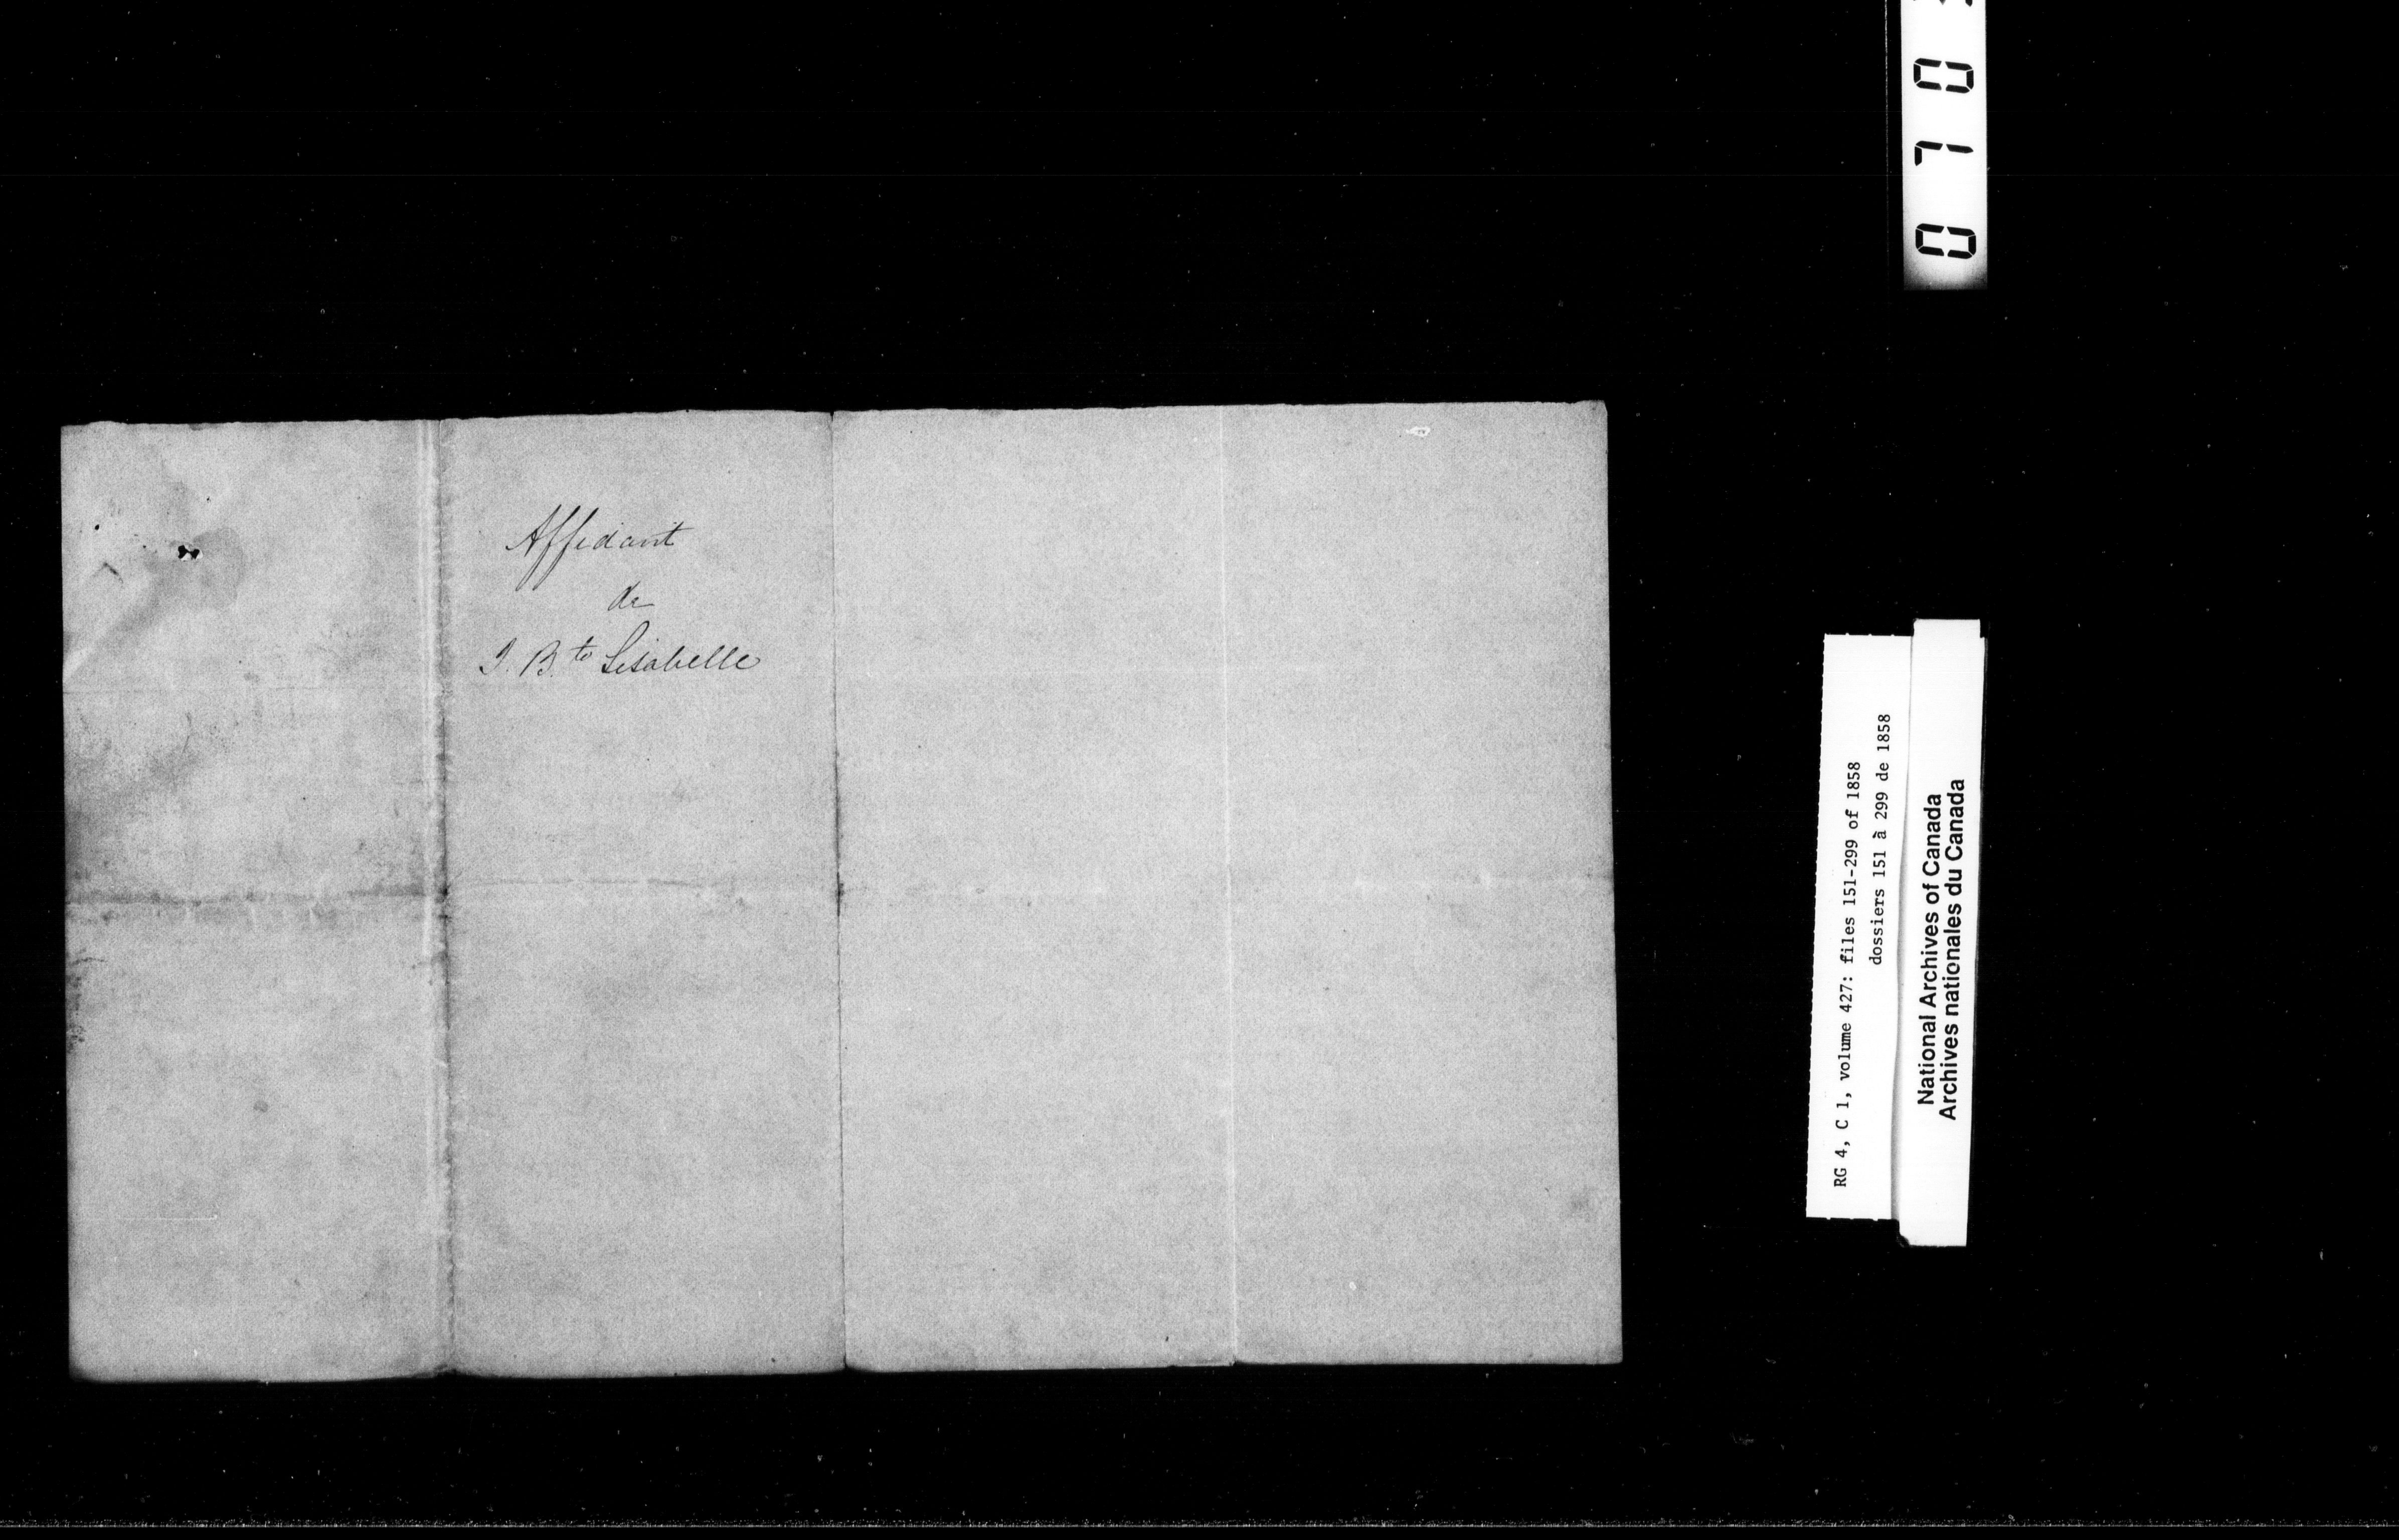 Affidavit
de
J. Bte Lisabelle
RG 4, C 1, volume 427: files 151-299 of 1858
dossiers 151 à 299 de 1858
National Archives of Canada
Archives nationales du Canada
070